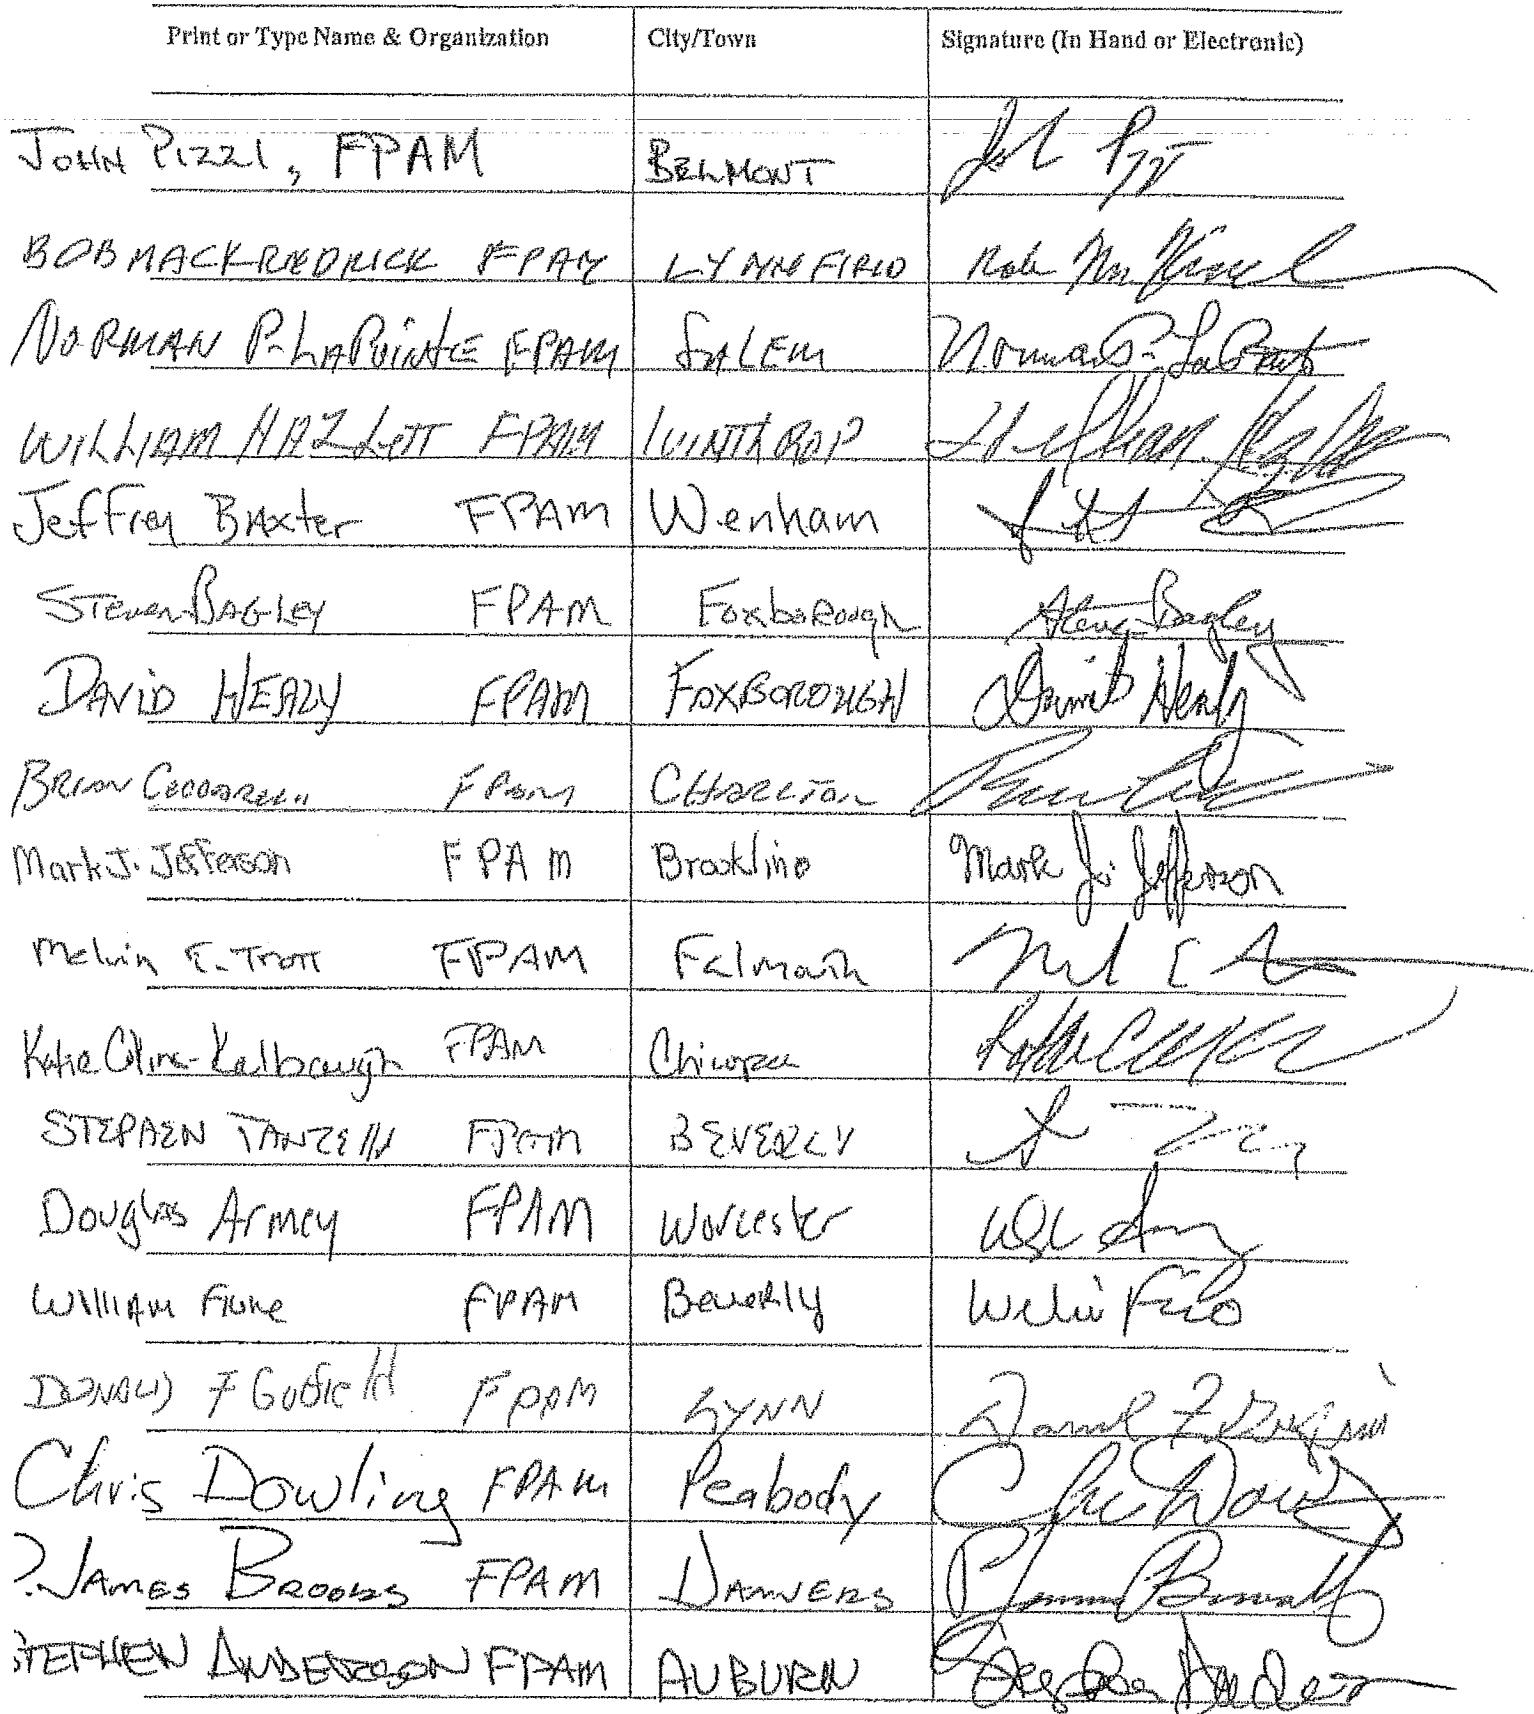 Print or Type Name & Organization City/Town Signature (In Hand or Electronic)
JOHN PIZZI, FPAM BELMONT
BOB MACKREDRICK FPAM LYNNFIELD
NORMAN P. LAPOINTE FPAM SALEM Norman P. LaPointe
WILLIAM HAZLETT FPAM WINTHROP
Jeffrey BAxter FPAM Wenham
Steven BAGLEY FPAM Foxborough Steve Bagley
DAVID HEALY FPAM FOXBOROUGH David Healy
BRIAN FPAM CHARLTON
Mark J. Jefferson FPAM Brookline Mark J. Jefferson
Melvin E. Trott FPAM Falmouth
Katie Cline-Kalbaugh FPAM Chicopee
STEPHEN TANZELLA FPAM BEVERLY
Douglas Armey FPAM Worcester
WILLIAM Fiore FPAM Beverly
DONALD F FPAM LYNN
Chris Dowling FPAM Peabody Chris Dowling
P. JAMES BROOKS FPAM DANVERS
STEPHEN ANDERSON FPAM AUBURN Stephen Anderson